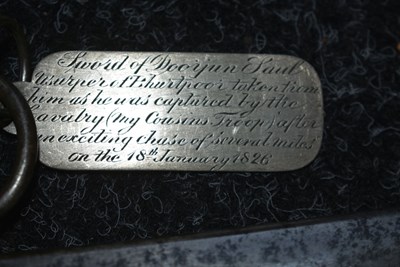 Sword of Doorjun Saul
Usurper of Bhurtpoor taken from
him as he was captured by the
Cavalry (my Cousins Troop) after
an exciting chase of several miles
on the 18th January 1826